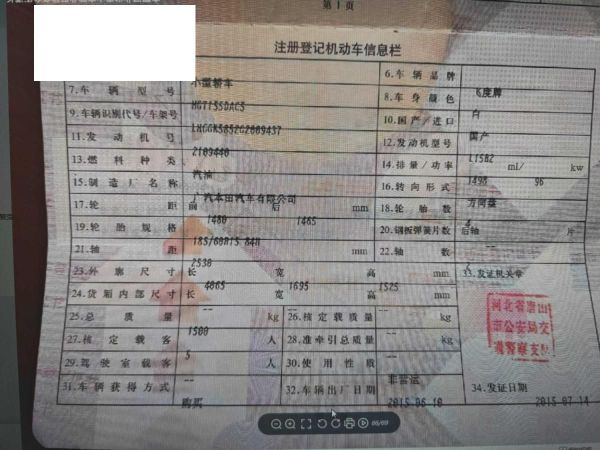 第 1 页
注册登记机动车信息栏
小型轿车
6.车辆品牌
飞度牌
7.车辆型号
HG7155DAC5
8.车身颜色
白
9.车辆识别代号/车架号
10.国产/进口
国产
11.发动机号
2109440
12.发动机型号
L15B2
13.燃料种类
汽油
14.排量/功率
1498 ml/ 96 kw
15.制造厂名称
广汽本田汽车有限公司
16.转向形式
方向盘
17.轮距
前 1480 后 1465 mm
18.轮胎数
4
19.轮胎规格
185/60R15 84H
20.钢板弹簧片数
后轴 -- 片
21.轴距
2530 mm
22.轴数
2
23.外廓尺寸
长 4065 宽 1695 高 1525 mm
33.发证机关章
24.货厢内部尺寸
长 -- 宽 -- 高 -- mm
河北省唐山
市公安局交
通警察支队
25.总质量
1500 kg
26.核定载质量
-- kg
27.核定载客
5 人
28.准牵引总质量
-- kg
29.驾驶室载客
-- 人
30.使用性质
非营运
31.车辆获得方式
购买
32.车辆出厂日期
2015-06-10
34.发证日期
2015-07-14